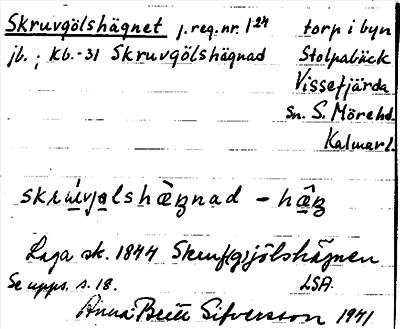 Skruvgölshägnet j. reg. nr. 1²⁴ torp i byn
jb. ; Kb.-31 Skruvgölshägnad Stolpabäck
Vissefjärda
sn. S. Mörehd.
Kalmar l.
skru̇vjɑlshæ̀ŋnad – hæ̂ŋ
Laga sk. 1844 Skruf(g)jölshägnen
Se upps. s. 18. LSA.
Anna-Britt Sifversson 1941